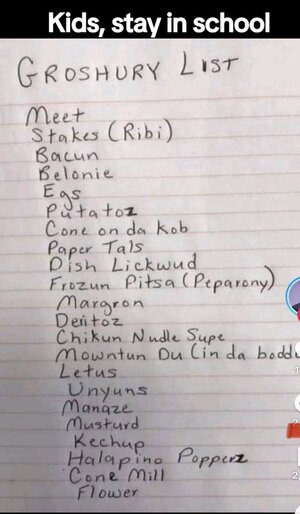 Kids, stay in school
GROSHURY LIST
Meet
Stakes (Ribi)
Bacun
Belonie
Egs
Putatoz
Cone on da Kob
Paper Tals
Dish Lickwud
Frozun Pitsa (Peparony)
Margron
Deritoz
Chikun Nudle Supe
Mowntun Du (in da boddl
Letus
Unyuns
Manaze
Musturd
Kechup
Halapino Popperz
Cone Mill
Flower